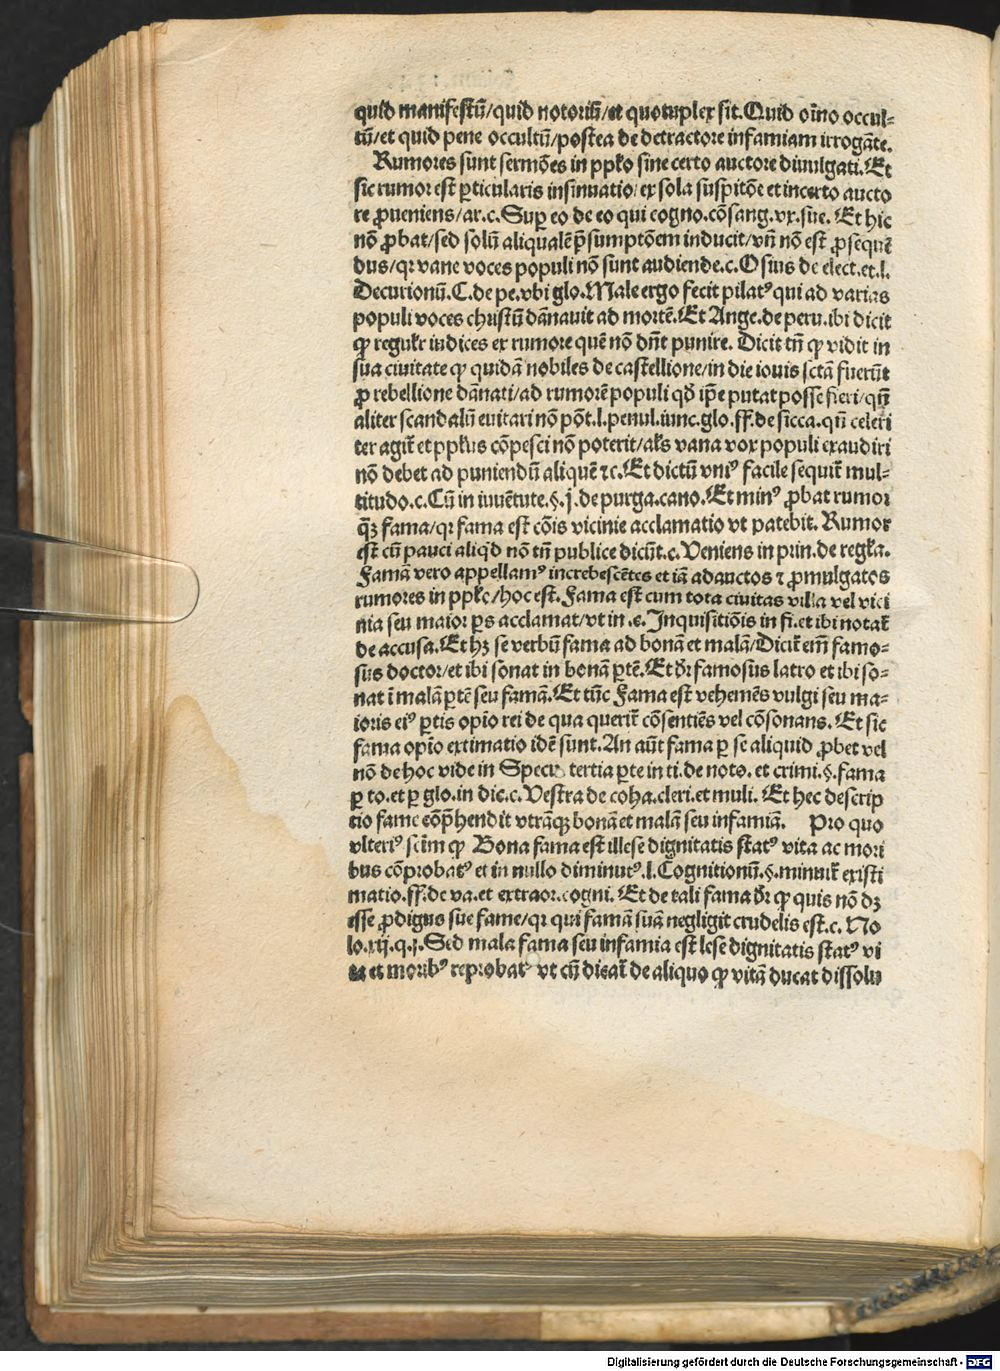 quid manifestū/quid notoriū/et quotuplex sit. Quid oīno occul-
tū/et quid pene occultū/postea de detractore infamiam irrogāte.
Rumores sunt sermōes in pplo sine certo auctore divulgati. Et
sic rumor est ꝑticularis insinuatio ex sola suspitōe et incerto aucto
re ꝓveniens/ar.c. Suꝑ eo de eo qui cogno.cōsang.vx.sue. Et hic
nō ꝓbat/sed solū aliqualē p̄sumptōem inducit/vn̄ nō est ꝓsequē
dus/qr vane voces populi nō sunt audiende.c. Osius de elect.et.l.
Decurionū. C.de pe.vbi glo. Male ergo fecit pilatꝰ qui ad varias
populi voces christū dānauit ad mortē. Et Ange.de peru.ibi dicit
ꝙ regulr iudices ex rumore quē nō dn̄t punire. Dicit tn̄ ꝙ vidit in
sua civitate ꝙ quidā nobiles de castellione/in die iouis sctā fuerūt
ꝓ rebellione dānati/ad rumorē populi qđ ip̄e putat posse fieri/qn̄
aliter scandalū euitari nō pōt.l.penul.iunc.glo.ff.de sicca.qn̄ celeri
ter agit̄ et pplus cōpesci nō poterit/als vana vox populi exaudiri
nō debet ad puniendū aliquē ⁊c. Et dictū vniꝰ facile sequit̄ mul-
titudo.c. Cū in iuuētute.§.j.de purga.cano. Et minꝰ ꝓbat rumor
qꝫ fama/qr fama est cōis vicinie acclamatio vt patebit. Rumor
est cū pauci aliqd nō tn̄ publice dicūt.c. Veniens in prin.de regla.
Famā vero appellamꝰ increbescētes et iā adauctos ⁊ ꝓmulgatos
rumores in pplo/hoc est. Fama est cum tota civitas villa vel vici
nia seu maior ꝑs acclamat/vt in .c. Inquisitiōis in fi.et ibi notat̄
de accusa. Et hꝫ se verbū fama ad bonā et malā/Dicit̄ em̄ famo-
sus doctor/et ibi sonat in bonā ꝑtē. Et dr̄ famosus latro et ibi so-
nat ī malā ꝑtē seu famā. Et tūc Fama est vehemēs vulgi seu ma-
ioris eiꝰ ꝑtis opīo rei de qua querit̄ cōsentiēs vel cōsonans. Et sic
fama opīo extimatio idē sunt. An aūt fama ꝑ se aliquid ꝓbet vel
nō de hoc vide in Specu. tertia ꝑte in ti.de noto. et crimi.§.fama
ꝑ to.et ꝑ glo.in dic.c. Vestra de coha.cleri.et muli. Et hec descrip
tio fame cōp̄hendit vtrāqꝫ bonā et malā seu infamiā. Pro quo
vlteriꝰ sciм ꝙ Bona fama est illese dignitatis statꝰ vita ac mori
bus cōprobatꝰ et in nullo diminutꝰ.l. Cognitionū.§.minuit̄ existi
matio.ff.de va.et extraor.cogni. Et de tali fama dr̄ ꝙ quis nō dꝫ
esse ꝓdigus sue fame/qr qui famā suā negligit crudelis est.c. No
lo.xij.q.j. Sed mala fama seu infamia est lese dignitatis statꝰ vi
ta et moribꝰ reprobatꝰ vt cū dicat̄ de aliquo ꝙ vitā ducat dissolu
Digitalisierung gefördert durch die Deutsche Forschungsgemeinschaft - DFG